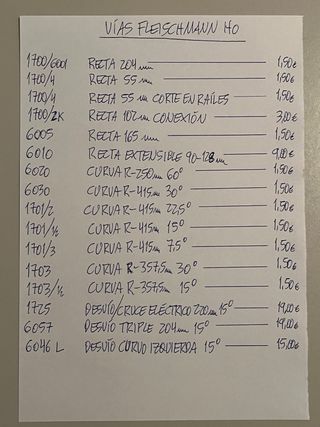 VÍAS FLEISCHMANN HO
1700/6001 RECTA 204mm 1,50€
1700/4 RECTA 55mm 1,50€
1700/4 RECTA 55m CORTE EN RAÍLES 1,50€
1700/2K RECTA 102m CONEXIÓN 3,00€
6005 RECTA 165 mm 1,50€
6010 RECTA EXTENSIBLE 90-128m 9,00€
6020 CURVA R-250m 60° 1,50€
6030 CURVA R-415m 30° 1,50€
1701/2 CURVA R-415m 22,5° 1,50€
1701/½ CURVA R-415m 15° 1,50€
1701/3 CURVA R-415m 7,5° 1,50€
1703 CURVA R-357,5m 30° 1,50€
1703/½ CURVA R-357,5m 15° 1,50€
1725 DESVÍO/CRUCE ELÉCTRICO 220m 15° 19,00€
6057 DESVÍO TRIPLE 204m 15° 19,00€
6046 L DESVÍO CURVO IZQUIERDA 15° 15,00€